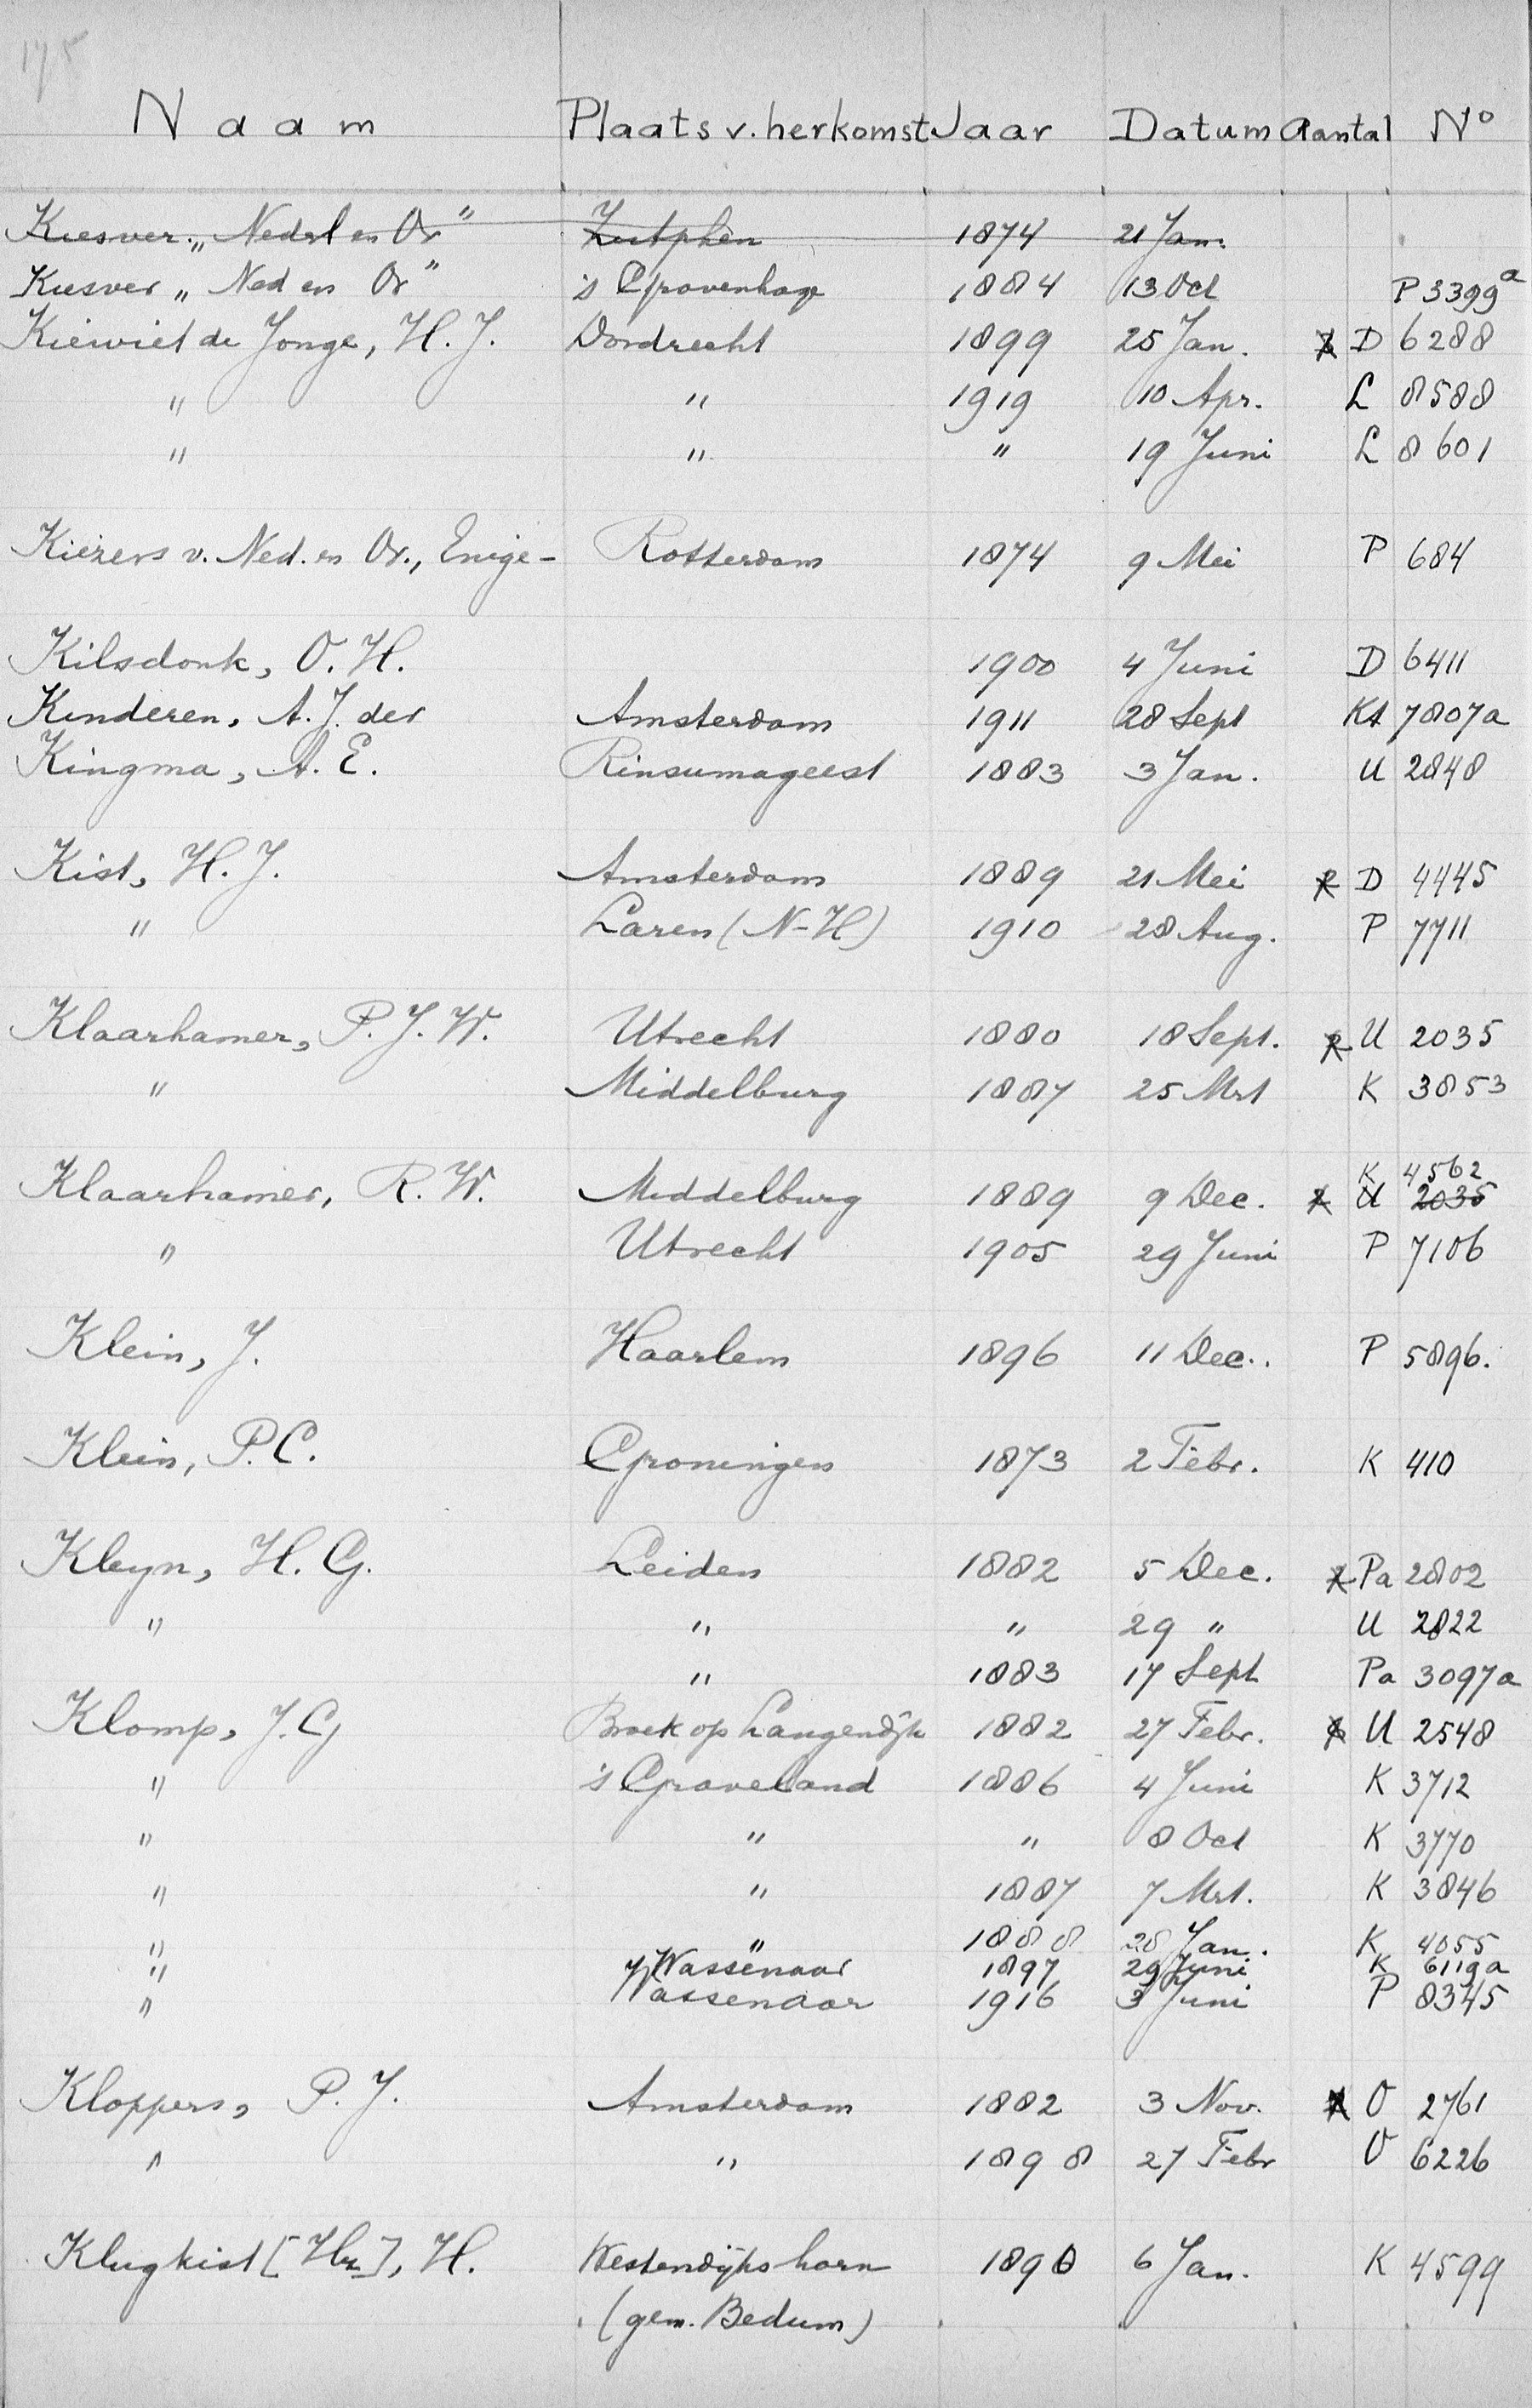 175
Naam Plaats v. herkomst Jaar Datum Aantal No
Kiesver. „Nederl en Or" Zutphen 1874 21 Jan.
Kiesver „Ned en Or" 's Gravenhage 1884 13 Oct P 3399a
Kiewiet de Jonge, H. J. Dordrecht 1899 25 Jan. D 6288
" " 1919 10 Apr. L 8588
" " " 19 Juni L 8601
Kiezers v. Ned. en Or., Enige- Rotterdam 1874 9 Mei P 684
Kilsdonk, O. H. 1900 4 Juni D 6411
Kinderen, A. J. der Amsterdam 1911 28 Sept Kt 7807a
Kingma, A. E. Rinsumageest 1883 3 Jan. U 2848
Kist, H. J. Amsterdam 1889 21 Mei D 4445
" Laren (N-H) 1910 28 Aug. P 7711
Klaarhamer, P. J. W. Utrecht 1880 18 Sept. U 2035
" Middelburg 1887 25 Mrt K 3853
K 4562
Klaarhamer, R. W. Middelburg 1889 9 Dec. U 2035
" Utrecht 1905 29 Juni P 7106
Klein, J. Haarlem 1896 11 Dec.. P 5896.
Klein, P. C. Groningen 1873 2 Febr. K 410
Kleyn, H. G. Leiden 1882 5 Dec. Pa 2802
" " " 29 " U 2822
" 1883 17 Sept Pa 3097a
Klomp, J. G Broek op Langendijk 1882 27 Febr. U 2548
" 's Graveland 1886 4 Juni K 3712
" " " 8 Oct K 3770
" " 1887 7 Mrt. K 3846
" " 1888 28 Jan. K 4055
" Wassenaar 1897 29 Juni K 6119a
" Wassenaar 1916 3 Juni P 8345
Kloppers, P. J. Amsterdam 1882 3 Nov. O 2761
" " 1898 27 Febr O 6226
Klugkist [Hz], H. Westerdijkshorn 1890 6 Jan. K 4599
(gem. Bedum)